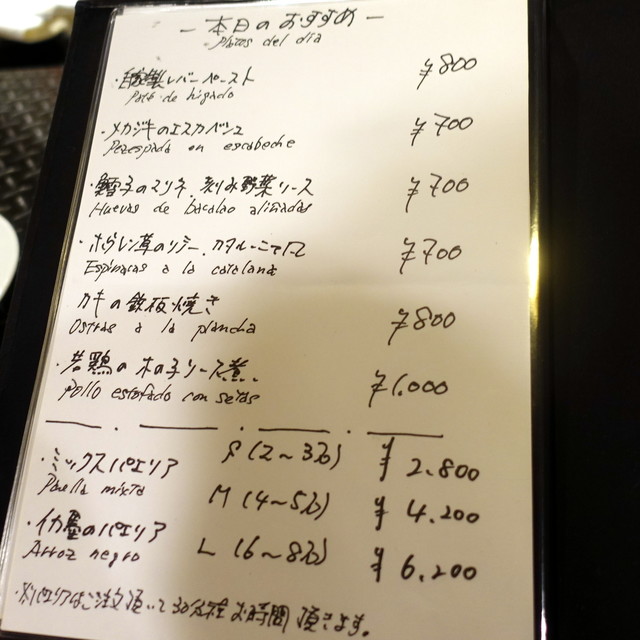 — 本日のおすすめ —
Platos del día
・自家製レバーペースト ¥800
Paté de higado
・メカジキのエスカベシュ ¥700
Pezespada en escabeche
・鱈子のマリネ、刻み野菜ソース ¥700
Huevas de bacalao aliñadas
・ホウレン草のソテー、カタルーニア風 ¥700
Espinacas a la catalana
カキの鉄板焼き ¥800
Ostras a la plancha
・若鶏の木の子ソース煮、 ¥1.000
Pollo estofado con setas
・ミックスパエリア P (2〜3名) ¥2.800
Paella mixta
M (4〜5名) ¥4.200
・イカ墨のパエリア
L (6〜8名) ¥6.200
Arroz negro
※パエリアはご注文頂いて30分程お時間頂きます。